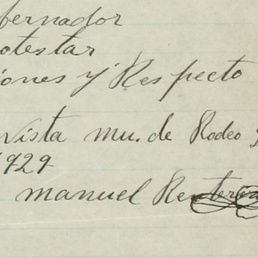 bernador
otestar
iones y Respecto
vista mu. de Rodeo
1929
manuel Renteria